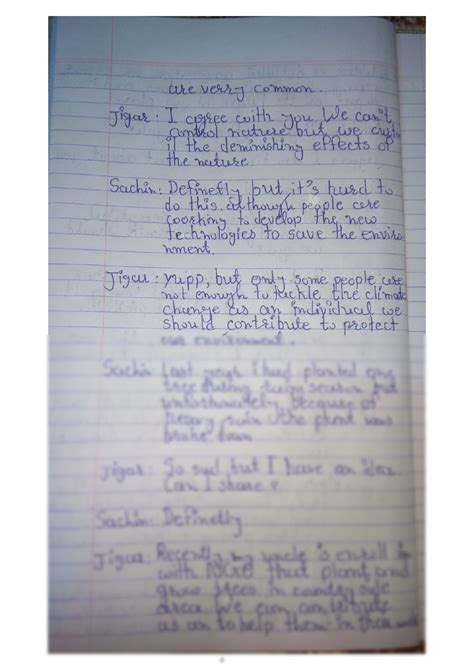 are verry common.
Jigar: I agree with you. We can't
control nature but we
the deminishing effects of
the nature.
Sachin: Definefly but it's hard to
do this. although people are
working to develop the new
technologies to save the enviro
nment.
Jigar: yupp, but only some people are
not enough to tackle the climate
change as an individual we
should contribute to protect
our environment.
Sachin: Last year I had planted one
tree during rainy season but
unfortunately because of
heavy rain the plant was
broke down
Jigar: So sad, but I have an idea.
Can I share ?
Sachin: Definetly.
Jigar: Recently my uncle is enroll
with NGO that plant and
grow trees in country side
area. We can contribute
as an to help them in